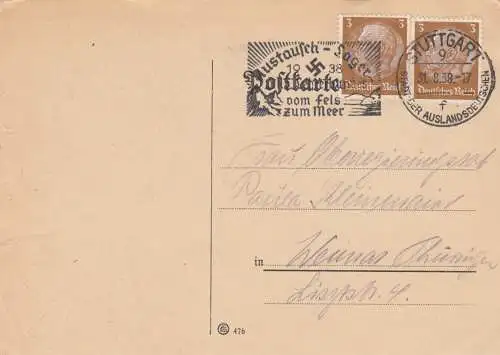 3 3
Austausch-Lager
1938
Postkarte
vom Fels
zum Meer
Deutsches Reich Deutsches Reich
STUTTGART
9
31.8.38.-17
DER AUSLANDSDEUTSCHEN
f
Frau Oberregierungsrat
Paula
in Weimar Thüringen
Lisztstr. 4.
476